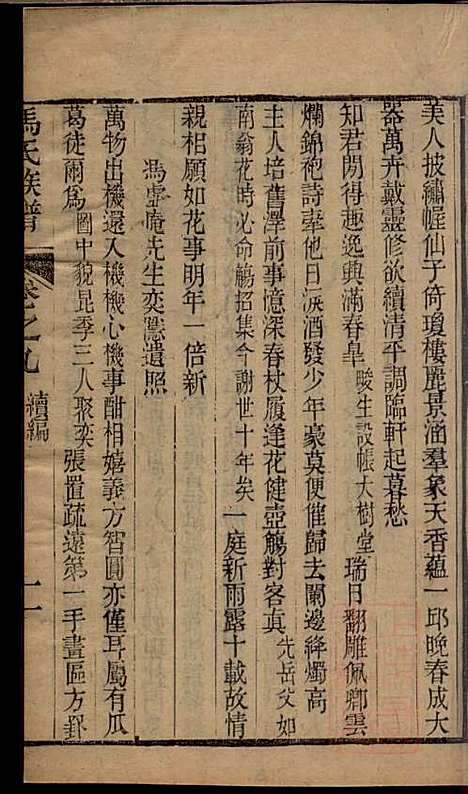 美人披繡幄仙子倚瓊樓麗景涵羣象天香蘊一邱晚春成大
器萬卉戴靈修欲續清平調臨軒起暮愁
知君閒得趣逸興滿春皐畯生設帳大樹堂瑞日翻雕佩卿雲
爛錦袍詩牽他日淚酒發少年豪莫便催歸去闌邊絳燭高
主人培舊澤前事憶深春杖履逢花健壺觴對客眞先岳父如
南翁花時必命觴招集今謝世十年矣一庭新雨露十載故情
親相願如花事明年一倍新
馮虛庵先生奕隱遺照
萬物出機還入機機心機事酣相嬉義方智圓亦僅耳屬有瓜
葛徒爾爲圖中貌昆季三人聚奕張置疏遠第一手畫區方卦
馮氏族譜
卷之九
續編
二